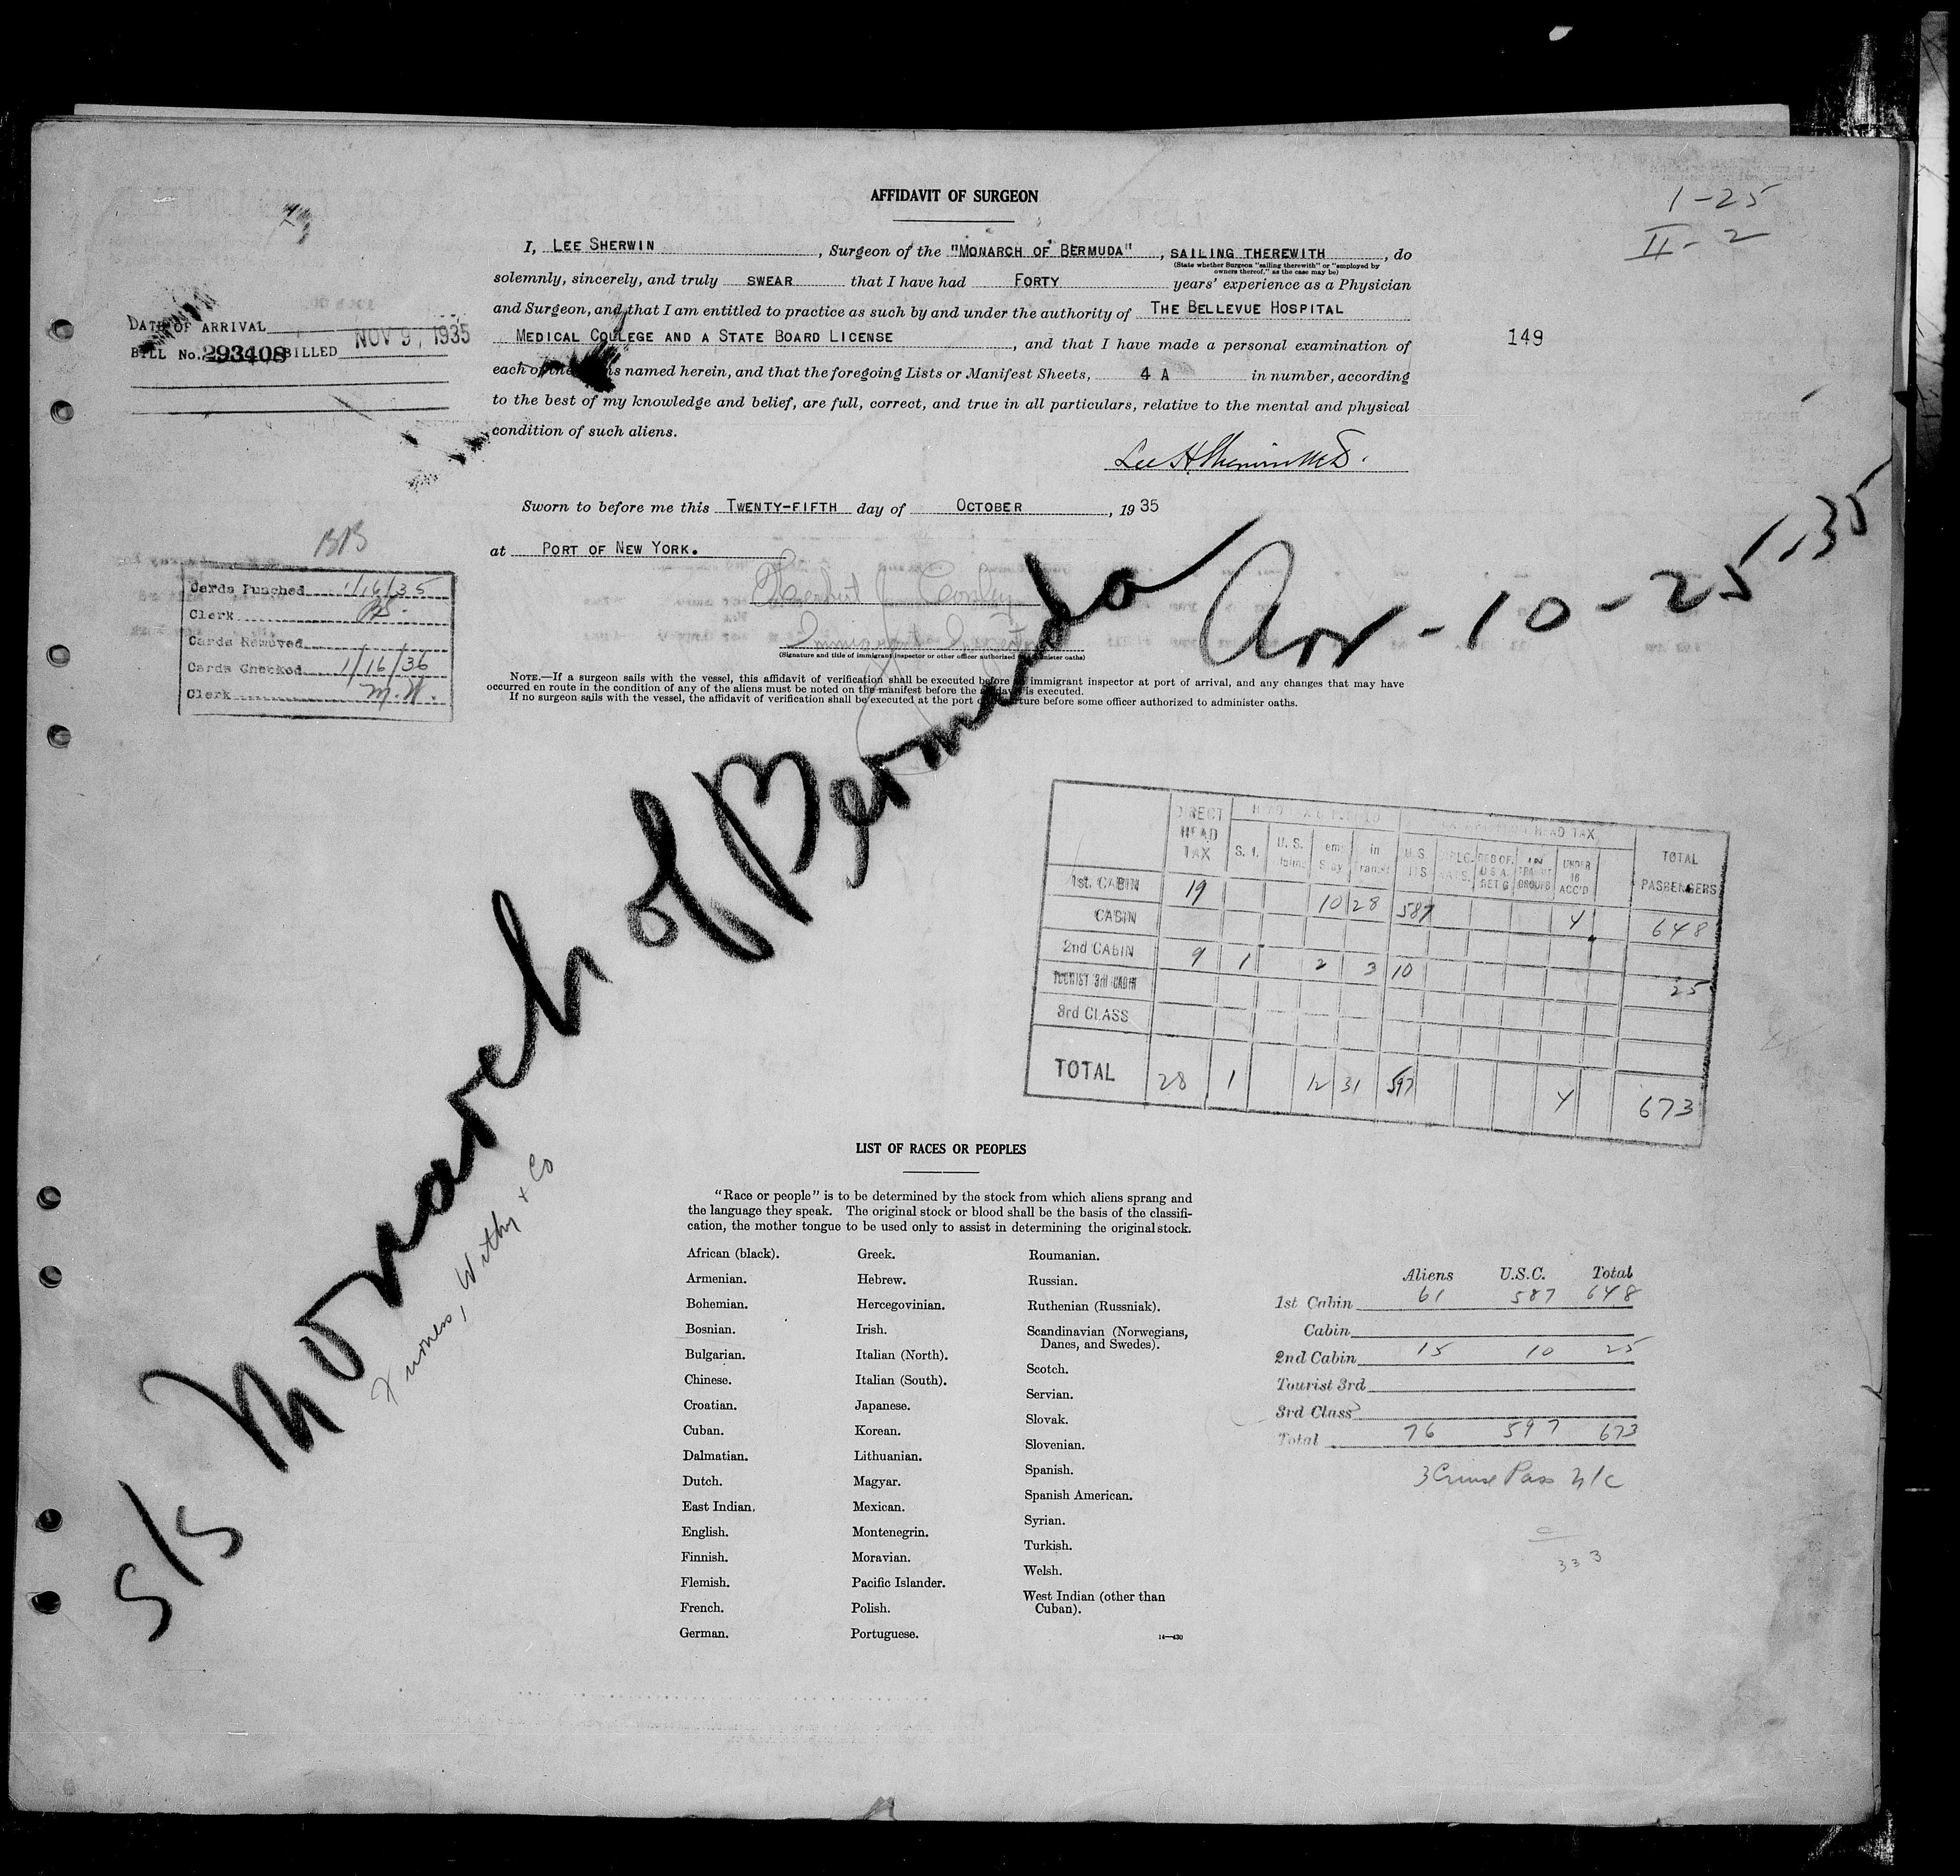 AFFIDAVIT OF SURGEON
1-25
II-2
I, LEE SHERWIN, Surgeon of the "MONARCH OF BERMUDA", SAILING THEREWITH, do
(State whether Surgeon "sailing therewith" or "employed by
owners thereof," as the case may be)
solemnly, sincerely, and truly SWEAR that I have had FORTY years' experience as a Physician
and Surgeon, and that I am entitled to practice as such by and under the authority of THE BELLEVUE HOSPITAL
MEDICAL COLLEGE AND A STATE BOARD LICENSE, and that I have made a personal examination of
each of the named herein, and that the foregoing Lists or Manifest Sheets, 4 A in number, according
to the best of my knowledge and belief, are full, correct, and true in all particulars, relative to the mental and physical
condition of such aliens.
Lee H Sherwin M.D.
149
DATE OF ARRIVAL
BILL No. 293408 BILLED NOV 9, 1935
Sworn to before me this TWENTY-FIFTH day of OCTOBER, 1935
at PORT OF NEW YORK.
Immigrant Inspector
(Signature and title of immigrant inspector or other officer authorized to administer oaths)
NOTE.—If a surgeon sails with the vessel, this affidavit of verification shall be executed before immigrant inspector at port of arrival, and any changes that may have
occurred en route in the condition of any of the aliens must be noted on the manifest before the affidavit is executed.
If no surgeon sails with the vessel, the affidavit of verification shall be executed at the port of departure before some officer authorized to administer oaths.
Cards Punched 1/16/35
Clerk
Cards Removed
Cards Checked 1/16/36
Clerk M.W.
S/S Monarch of Bermuda Arr - 10-25-35
Furness, Withy & Co
DIRECT HEAD TAX S. I. U. S. in Transit HEAD TAX UNDER 16 ACC'D TOTAL PASSENGERS
1st. CABIN 19 10 28 587 4 648
CABIN
2nd CABIN 9 1 2 3 10 25
TOURIST 3rd CABIN
3rd CLASS
TOTAL 28 1 12 31 597 4 673
LIST OF RACES OR PEOPLES
"Race or people" is to be determined by the stock from which aliens sprang and
the language they speak. The original stock or blood shall be the basis of the classifi-
cation, the mother tongue to be used only to assist in determining the original stock.
African (black).
Armenian.
Bohemian.
Bosnian.
Bulgarian.
Chinese.
Croatian.
Cuban.
Dalmatian.
Dutch.
East Indian.
English.
Finnish.
Flemish.
French.
German.
Greek.
Hebrew.
Hercegovinian.
Irish.
Italian (North).
Italian (South).
Japanese.
Korean.
Lithuanian.
Magyar.
Mexican.
Montenegrin.
Moravian.
Pacific Islander.
Polish.
Portuguese.
Roumanian.
Russian.
Ruthenian (Russniak).
Scandinavian (Norwegians,
Danes, and Swedes).
Scotch.
Servian.
Slovak.
Slovenian.
Spanish.
Spanish American.
Syrian.
Turkish.
Welsh.
West Indian (other than
Cuban).
14—430
Aliens U.S.C. Total
1st Cabin 61 587 648
Cabin
2nd Cabin 15 10 25
Tourist 3rd
3rd Class
Total 76 597 673
3 Cruise Pass
333